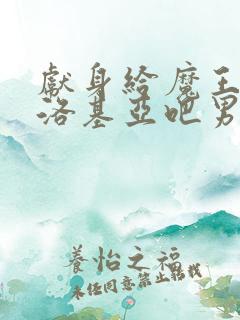 獻身給魔王
洛基亞吧男
養怡之福
未任同意禁止轉載